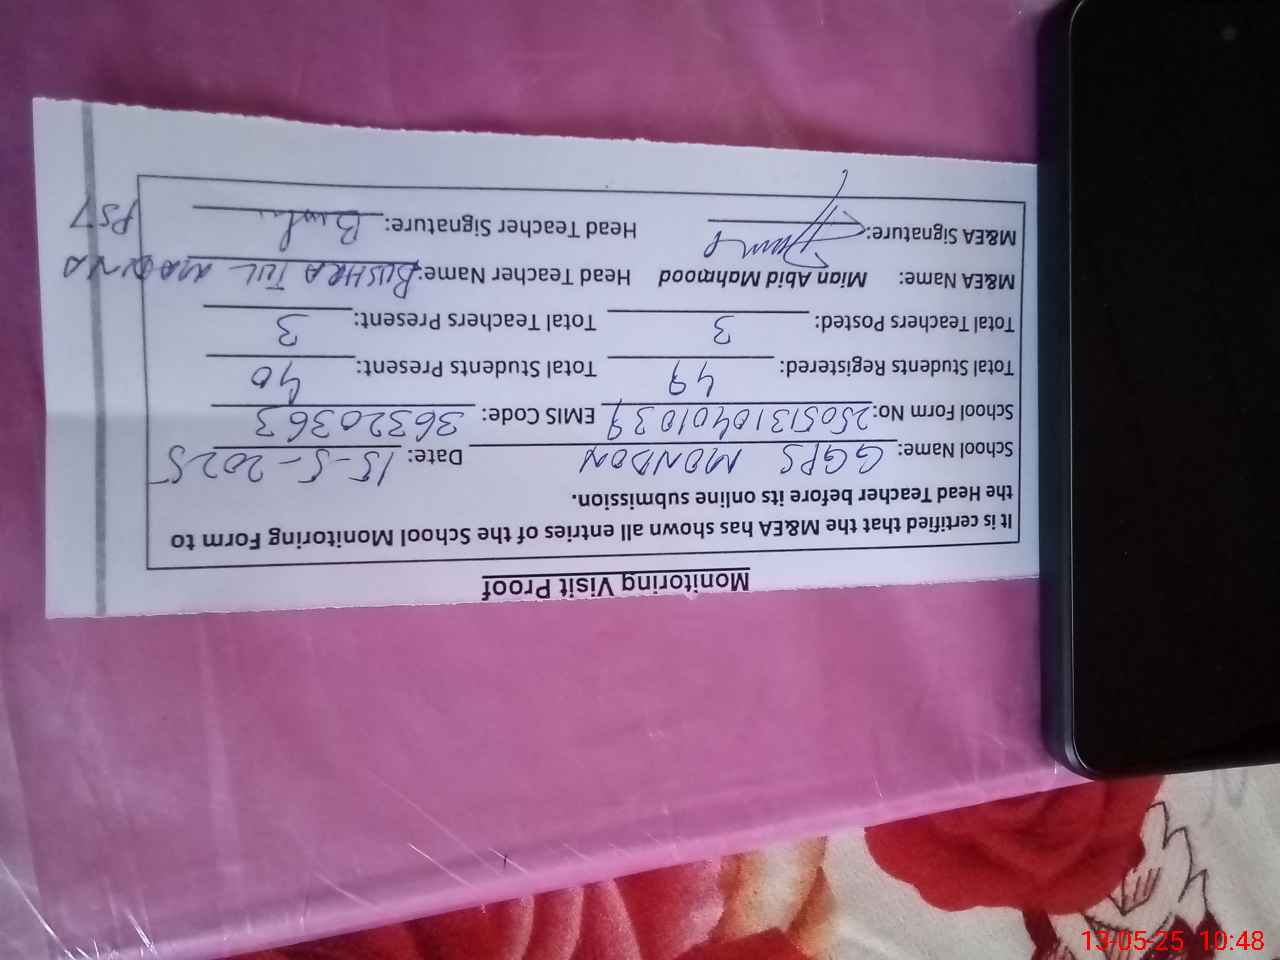 Monitoring Visit Proof
It is certified that the M&EA has shown all entries of the School Monitoring Form to
the Head Teacher before its online submission.
School Name: GGPS MONDON Date: 15-5-2025
School Form No: 2505131040103 9 EMIS Code: 36320363
Total Students Registered: 49 Total Students Present: 40
Total Teachers Posted: 3 Total Teachers Present: 3
M&EA Name: Mian Abid Mahmood Head Teacher Name: BUSHRA TUL
M&EA Signature: Head Teacher Signature:
PST
13-05-25 10:48